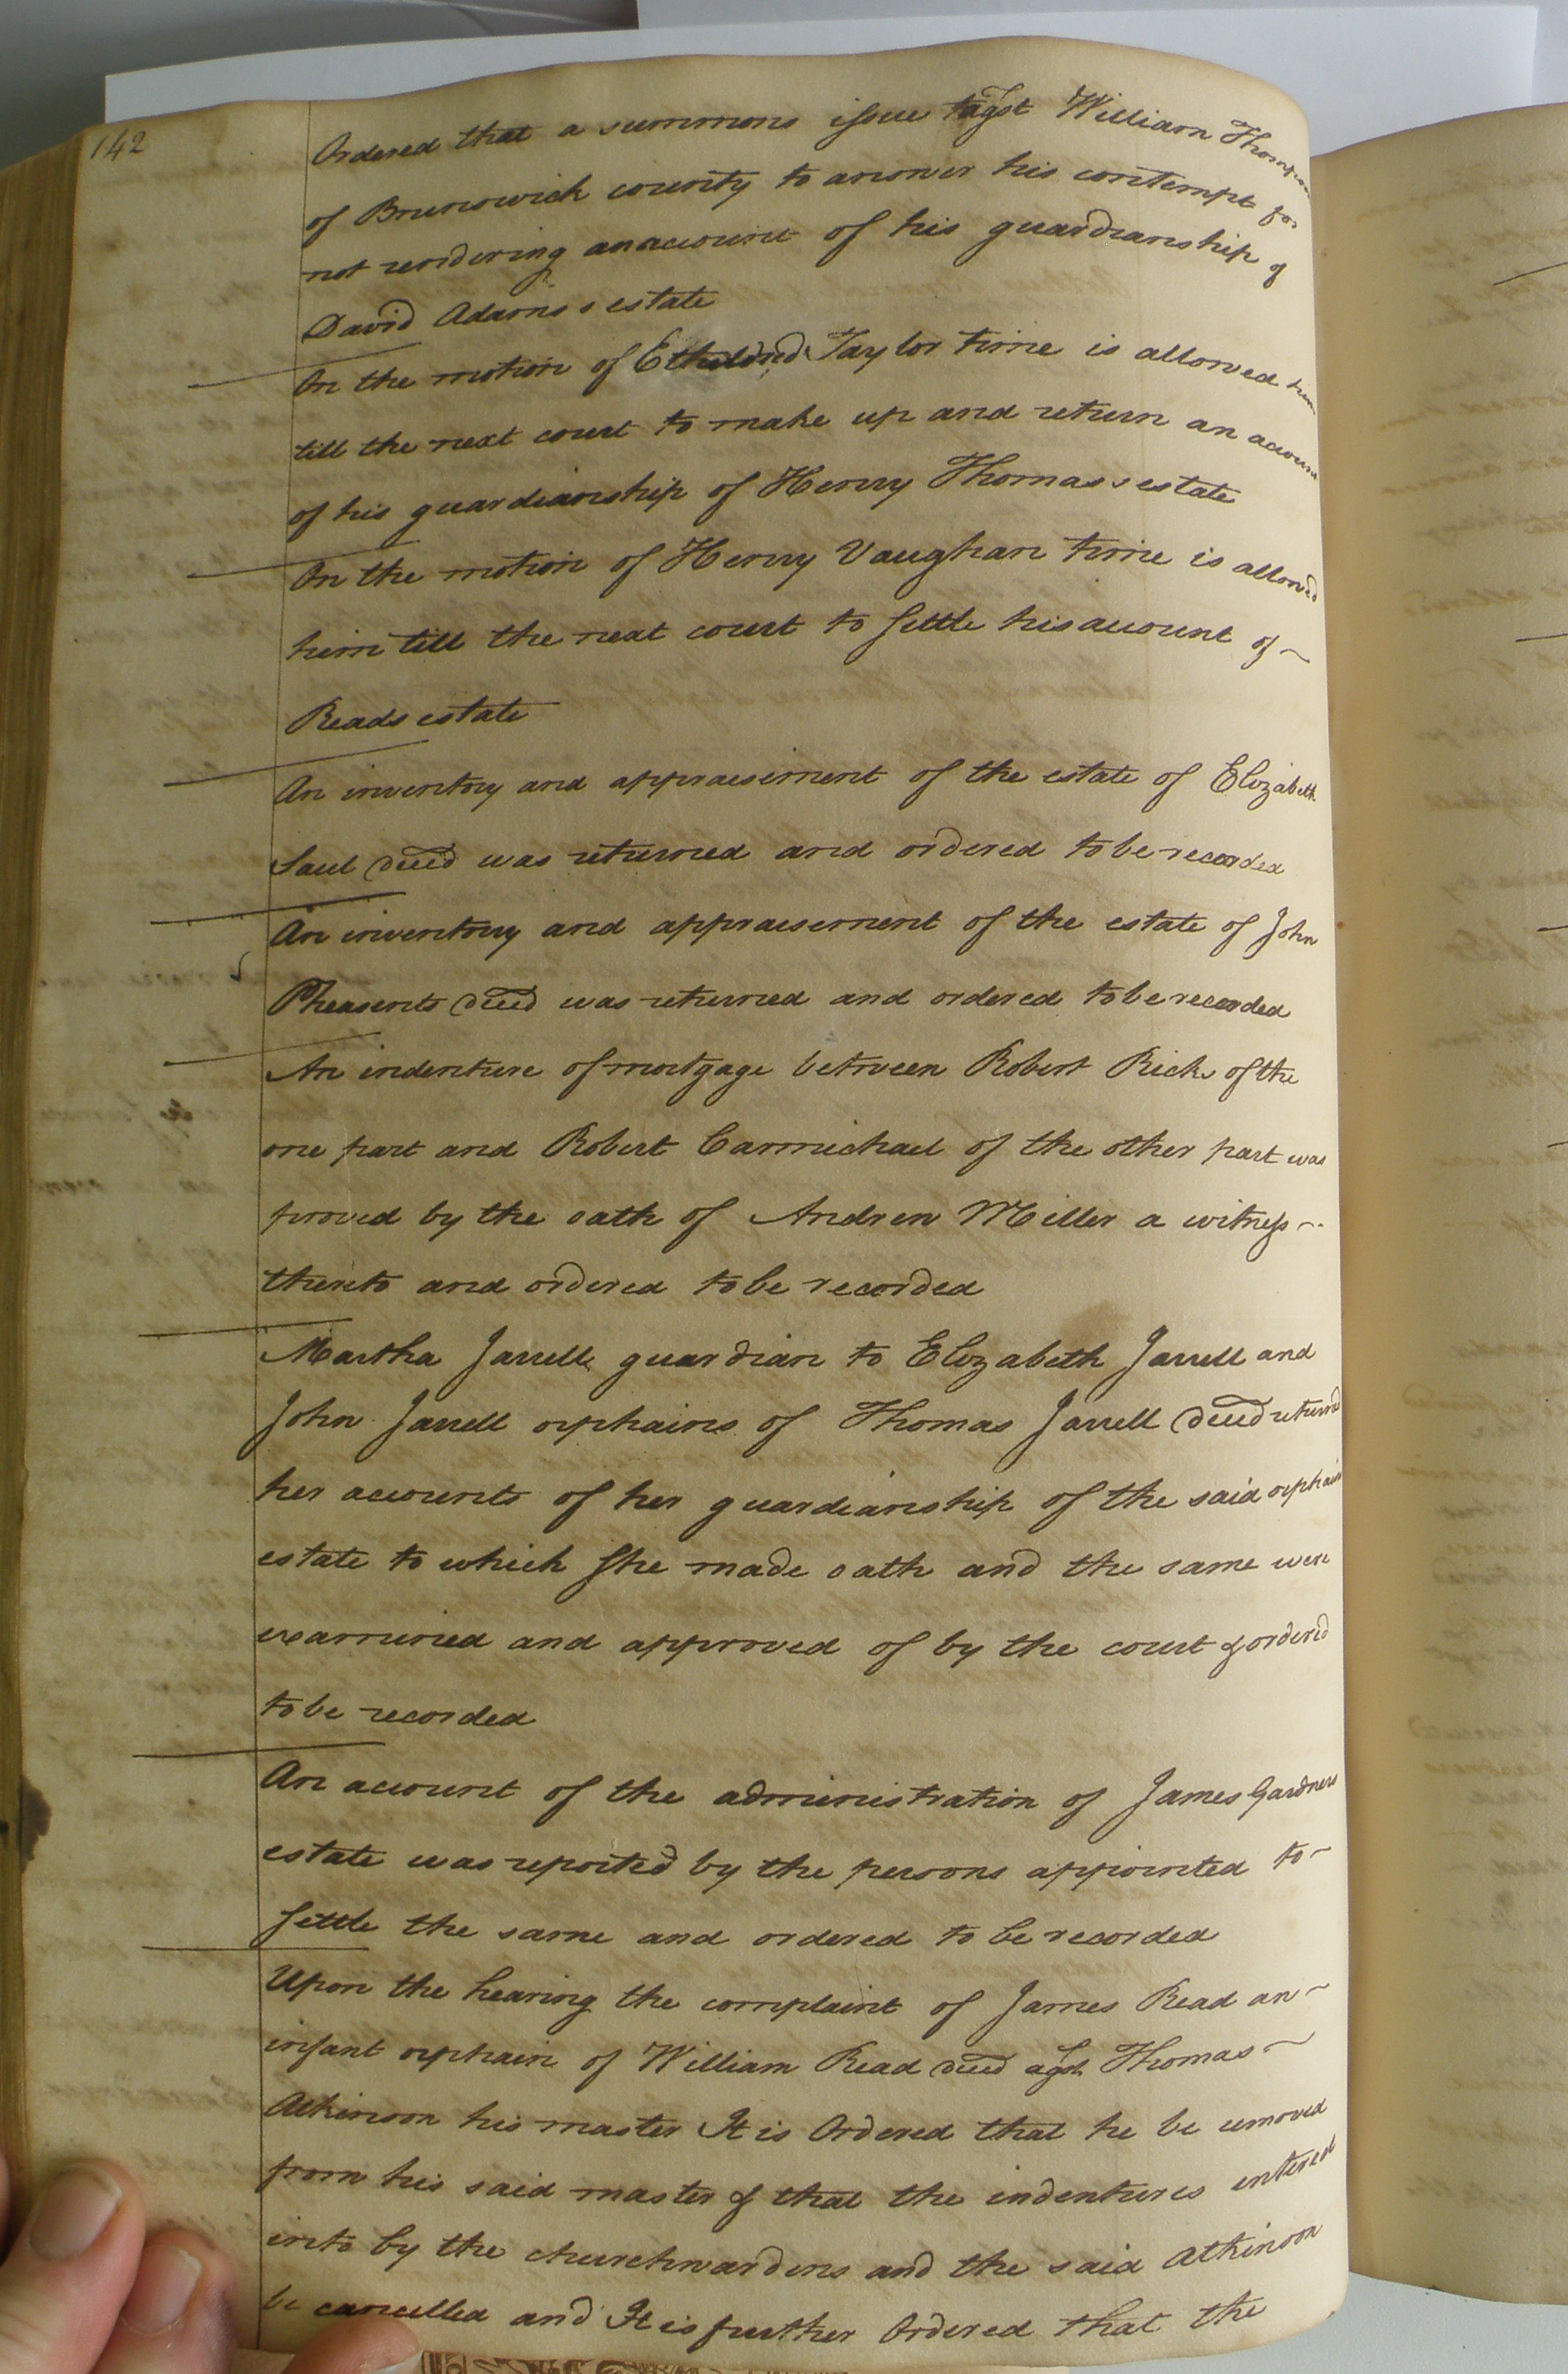 142
Ordered that a summons issue agst William Thompson
of Brunswick county to answer his contempt for
not rendering an account of his guardianship of
David Adams's estate
On the motion of Etheldred Taylor time is allowed him
till the next court to make up and return an account
of his guardianship of Henry Thomas's estate
On the motion of Henry Vaughan time is allowed
him till the next court to settle his account of
Reads estate
An inventory and appraisement of the estate of Elizabeth
Saul deced was returned and ordered to be recorded
An inventory and appraisement of the estate of John
Pheasents deced was returned and ordered to be recorded
An indenture of mortgage between Robert Ricks of the
one part and Robert Carmichael of the other part was
proved by the oath of Andrew Miller a witness
thereto and ordered to be recorded
Martha Jarrell guardian to Elizabeth Jarrell and
John Jarrell orphains of Thomas Jarrell deced returned
her accounts of her guardianship of the said orphains
estate to which she made oath and the same were
examined and approved of by the court & ordered
to be recorded
An account of the administration of James Gardners
estate was reported by the persons appointed to
settle the same and ordered to be recorded
Upon the hearing the complaint of James Read an
infant orphain of William Read deced agst Thomas
Atkinson his master It is Ordered that he be removed
from his said master & that the indentures entered
into by the churchwardens and the said Atkinson
be cancelled and It is further Ordered that the